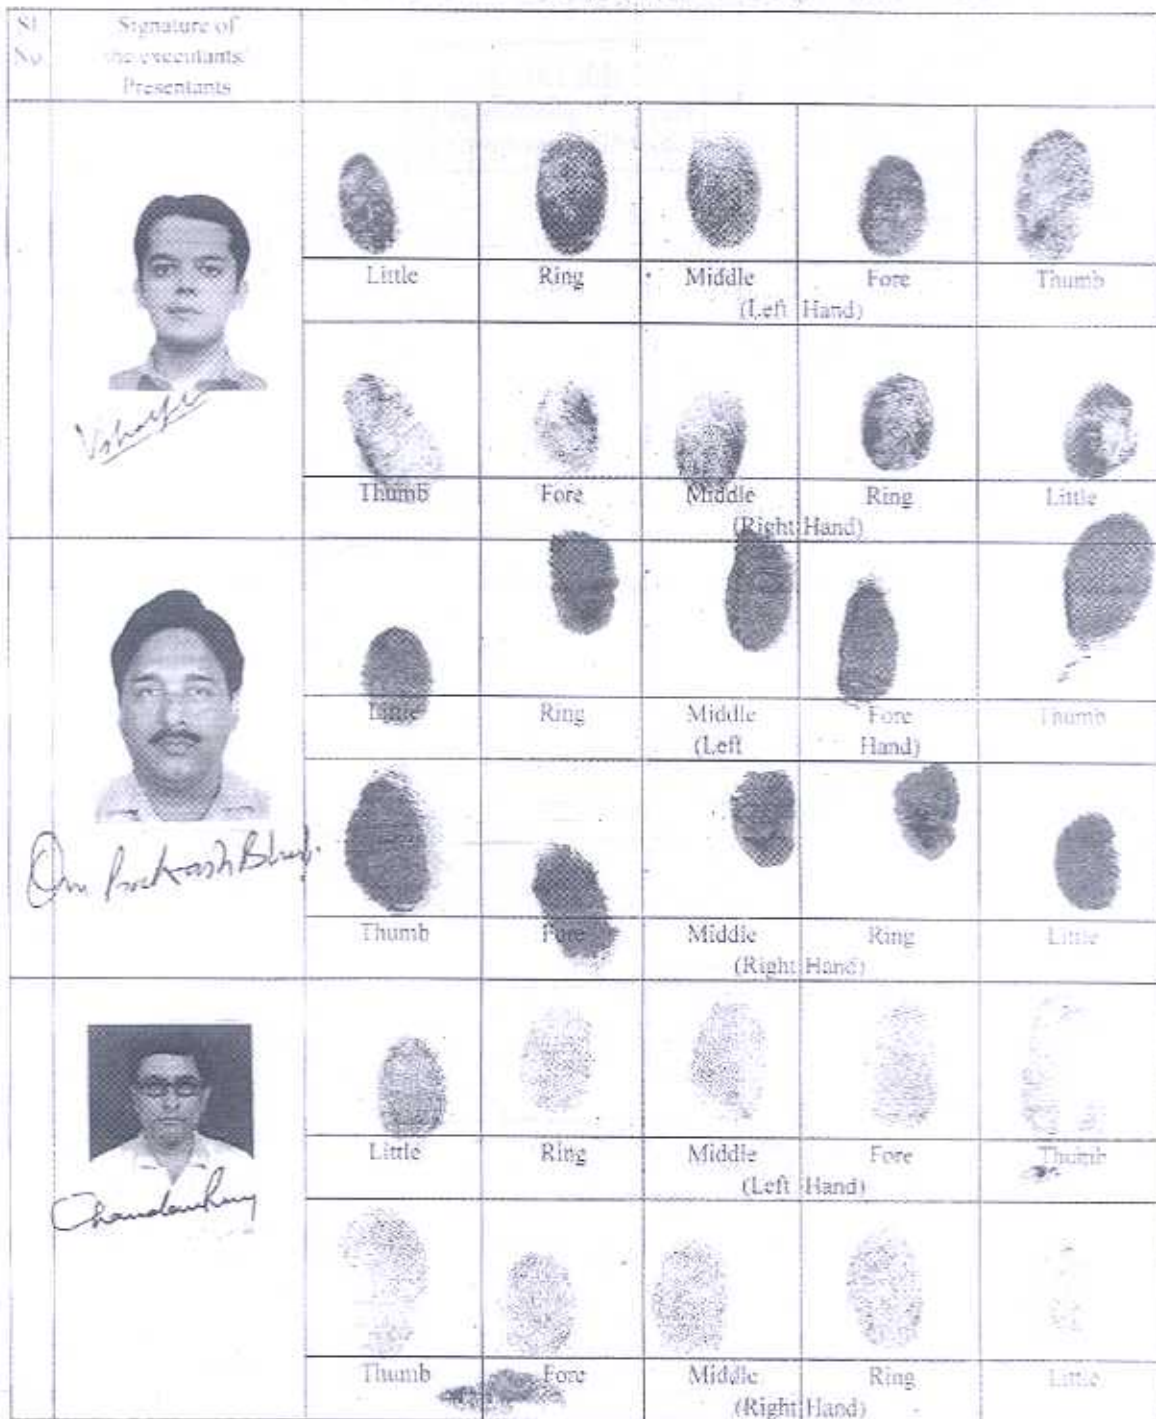 Sl. Signature of
No. the executants/
Presentants
Little Ring Middle Fore Thumb
(Left Hand)
Thumb Fore Middle Ring Little
(Right Hand)
Little Ring Middle Fore Thumb
(Left Hand)
Om Prakash
Thumb Fore Middle Ring Little
(Right Hand)
Little Ring Middle Fore Thumb
(Left Hand)
Thumb Fore Middle Ring Little
(Right Hand)